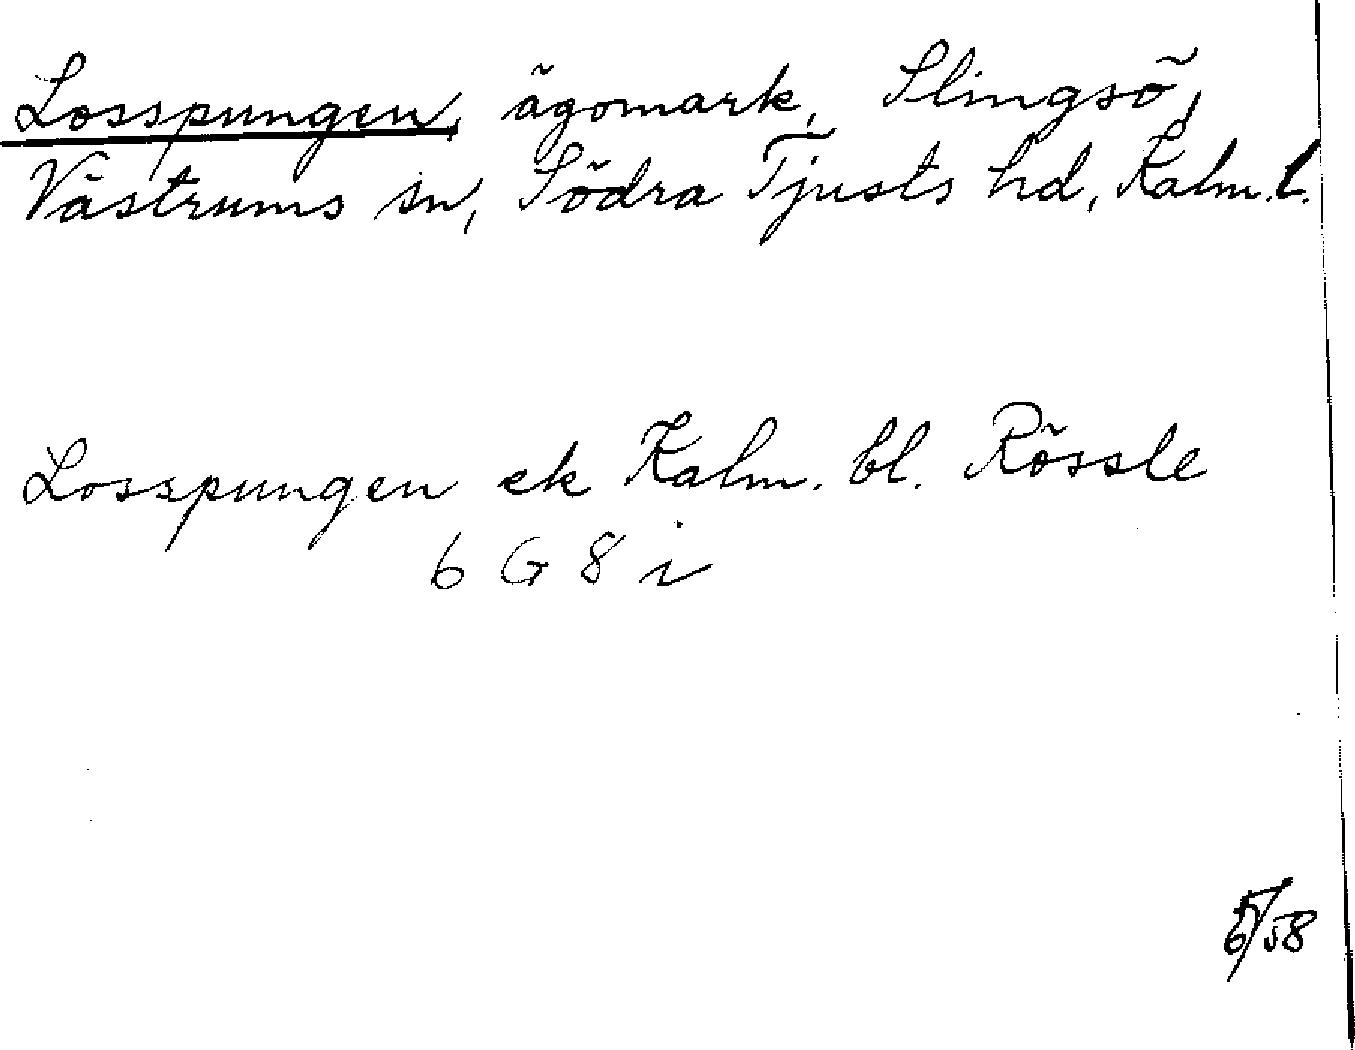 Losspungen, ägomark, Slingsö,
Västrums sn, Södra Tjusts hd, Kalm. l.
Losspungen ek Kalm. bl. Rössle
6 G 8 i